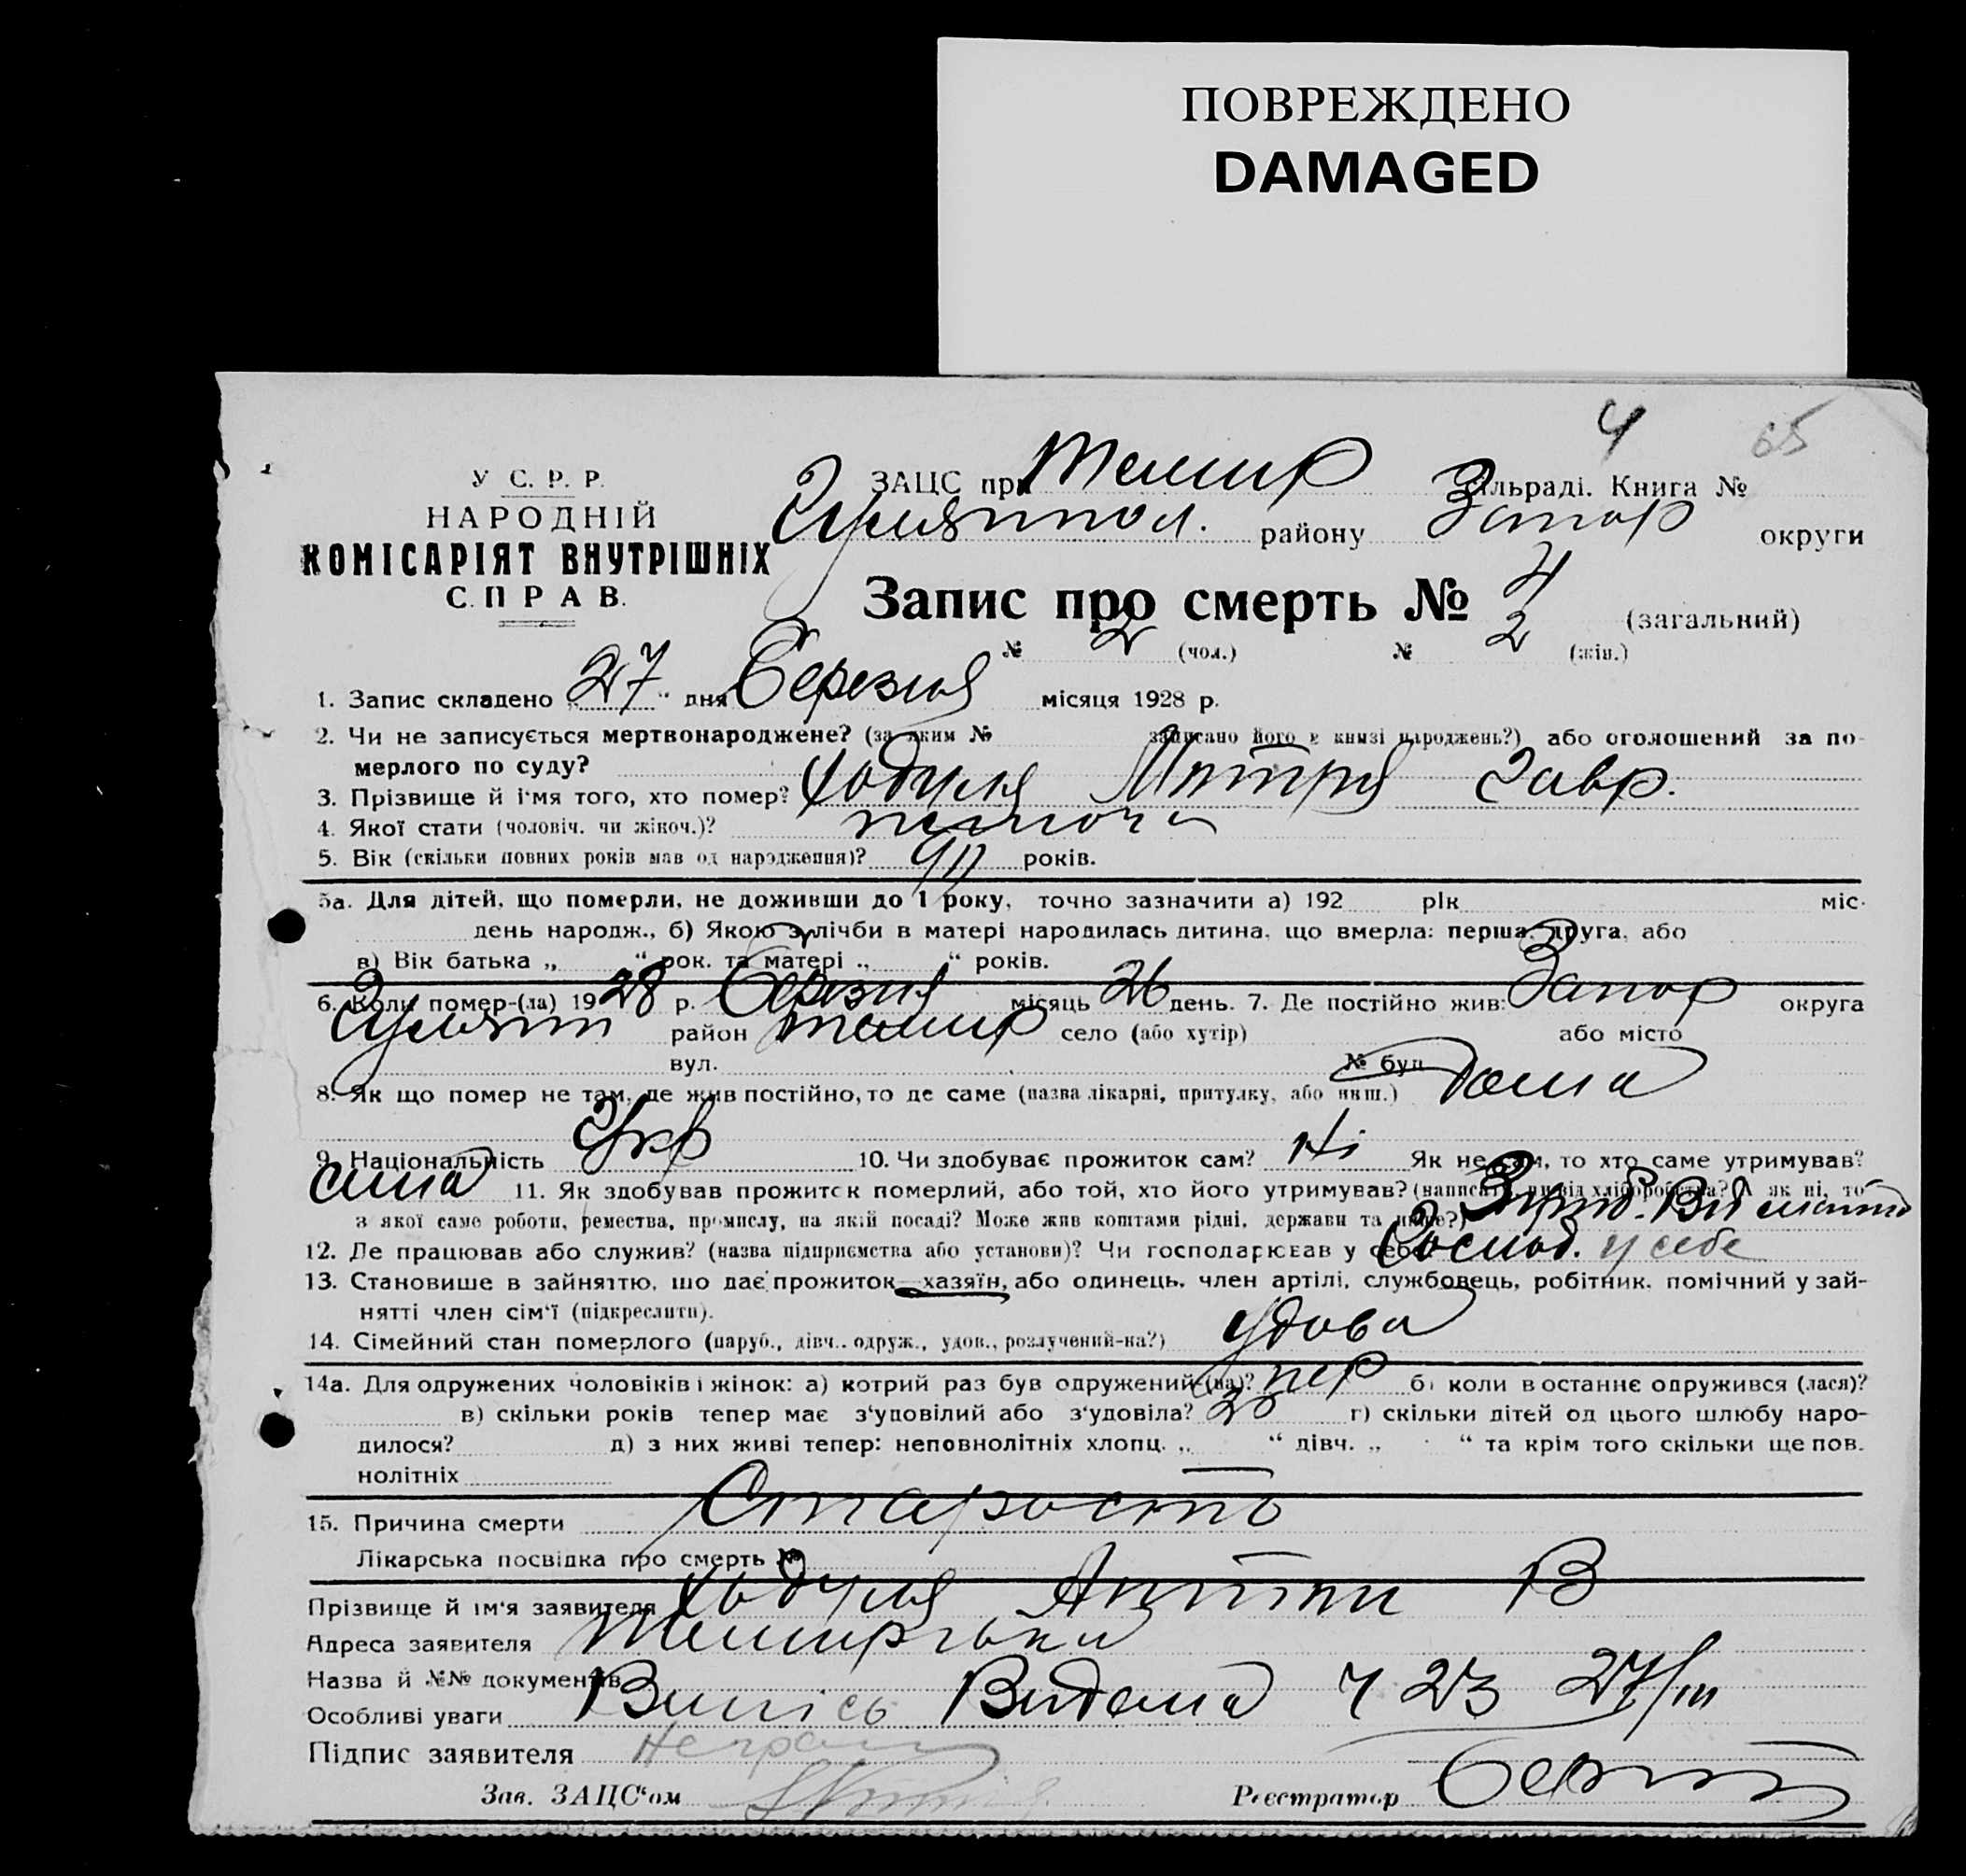 ПОВРЕЖДЕНО
DAMAGED
4 65
У С. Р. Р.
НАРОДНІЙ
КОМІСАРІЯТ ВНУТРІШНІХ
СПРАВ.
ЗАЦС при Темир сільраді. Книга №
Гуляйпол. району Запор округи
Запис про смерть № 4 (загальний)
№ 2 (чол.) № 2 (жін.)
1. Запис складено „27“ дня Березня місяця 1928 р.
2. Чи не записується мертвонароджене? (за яким № записано його в книзі народжень?) або оголошений за по-
мерлого по суду?
3. Прізвище й ім'я того, хто помер? Ходуля Мотря Гавр.
4. Якої стати (чоловіч. чи жіноч.)? жіноча
5. Вік (скільки повних років мав од народження)? років.
5а. Для дітей, що померли, не доживши до 1 року, точно зазначити а) 192 рік міс.
день народж., б) Якою з лічби в матері народилась дитина, що вмерла: перша, друга, або
в) Вік батька „ “ рок. та матері „ “ років.
6. Коли помер-(ла) 1928 р. Березня місяць 26 день. 7. Де постійно жив: Запор округа
Гуляйп район Темир село (або хутір) або місто
вул. № буд
8. Як що помер не там, де жив постійно, то де саме (назва лікарні, притулку, або инш.) дома
9. Національність Укр 10. Чи здобуває прожиток сам? Ні Як не сам, то хто саме утримував?
сина 11. Як здобував прожиток померлий, або той, хто його утримував? (написати, чи від хліборобства? А як ні, то
з якої саме роботи, ремества, промислу, на якій посаді? Може жив коштами рідні, держави та инше?)
12. Де працював або служив? (назва підприємства або установи)? Чи господарював у себе Господ. у себе
13. Становище в зайняттю, що дає прожиток хазяїн, або одинець, член артілі, службовець, робітник, помічний у зай-
нятті член сім'ї (підкреслити).
14. Сімейний стан померлого (паруб., дівч., одруж., удов., розлучений-на?) удова
14а. Для одружених чоловіків і жінок: а) котрий раз був одружений-(на)? пер б) коли востаннє одружився (лася)?
в) скільки років тепер має з'удовілий або з'удовіла? г) скільки дітей од цього шлюбу наро-
дилося? д) з них живі тепер: неповнолітніх хлопц. „ “ дівч. „ “ та крім того скільки ще пов.
нолітніх
15. Причина смерти Старость
Лікарська посвідка про смерть №
Прізвище й ім'я заявителя Ходуля Антон В
Адреса заявителя Темирська
Назва й №№ документів
Особливі уваги Випісь Видана Ч 23 27/III
Підпис заявителя
Зав. ЗАЦС'ом Реєстратор